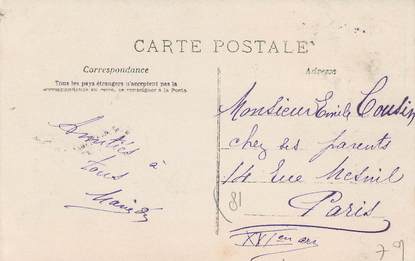 CARTE POSTALE
Correspondance
Tous les pays étrangers n'acceptent pas la
correspondance au verso, se renseigner à la Poste
Amitiés à
tous
Adresse
Monsieur Emile Cousin
chez ses parents
14 Rue Mesnil
Paris
XVIe arr
81
79